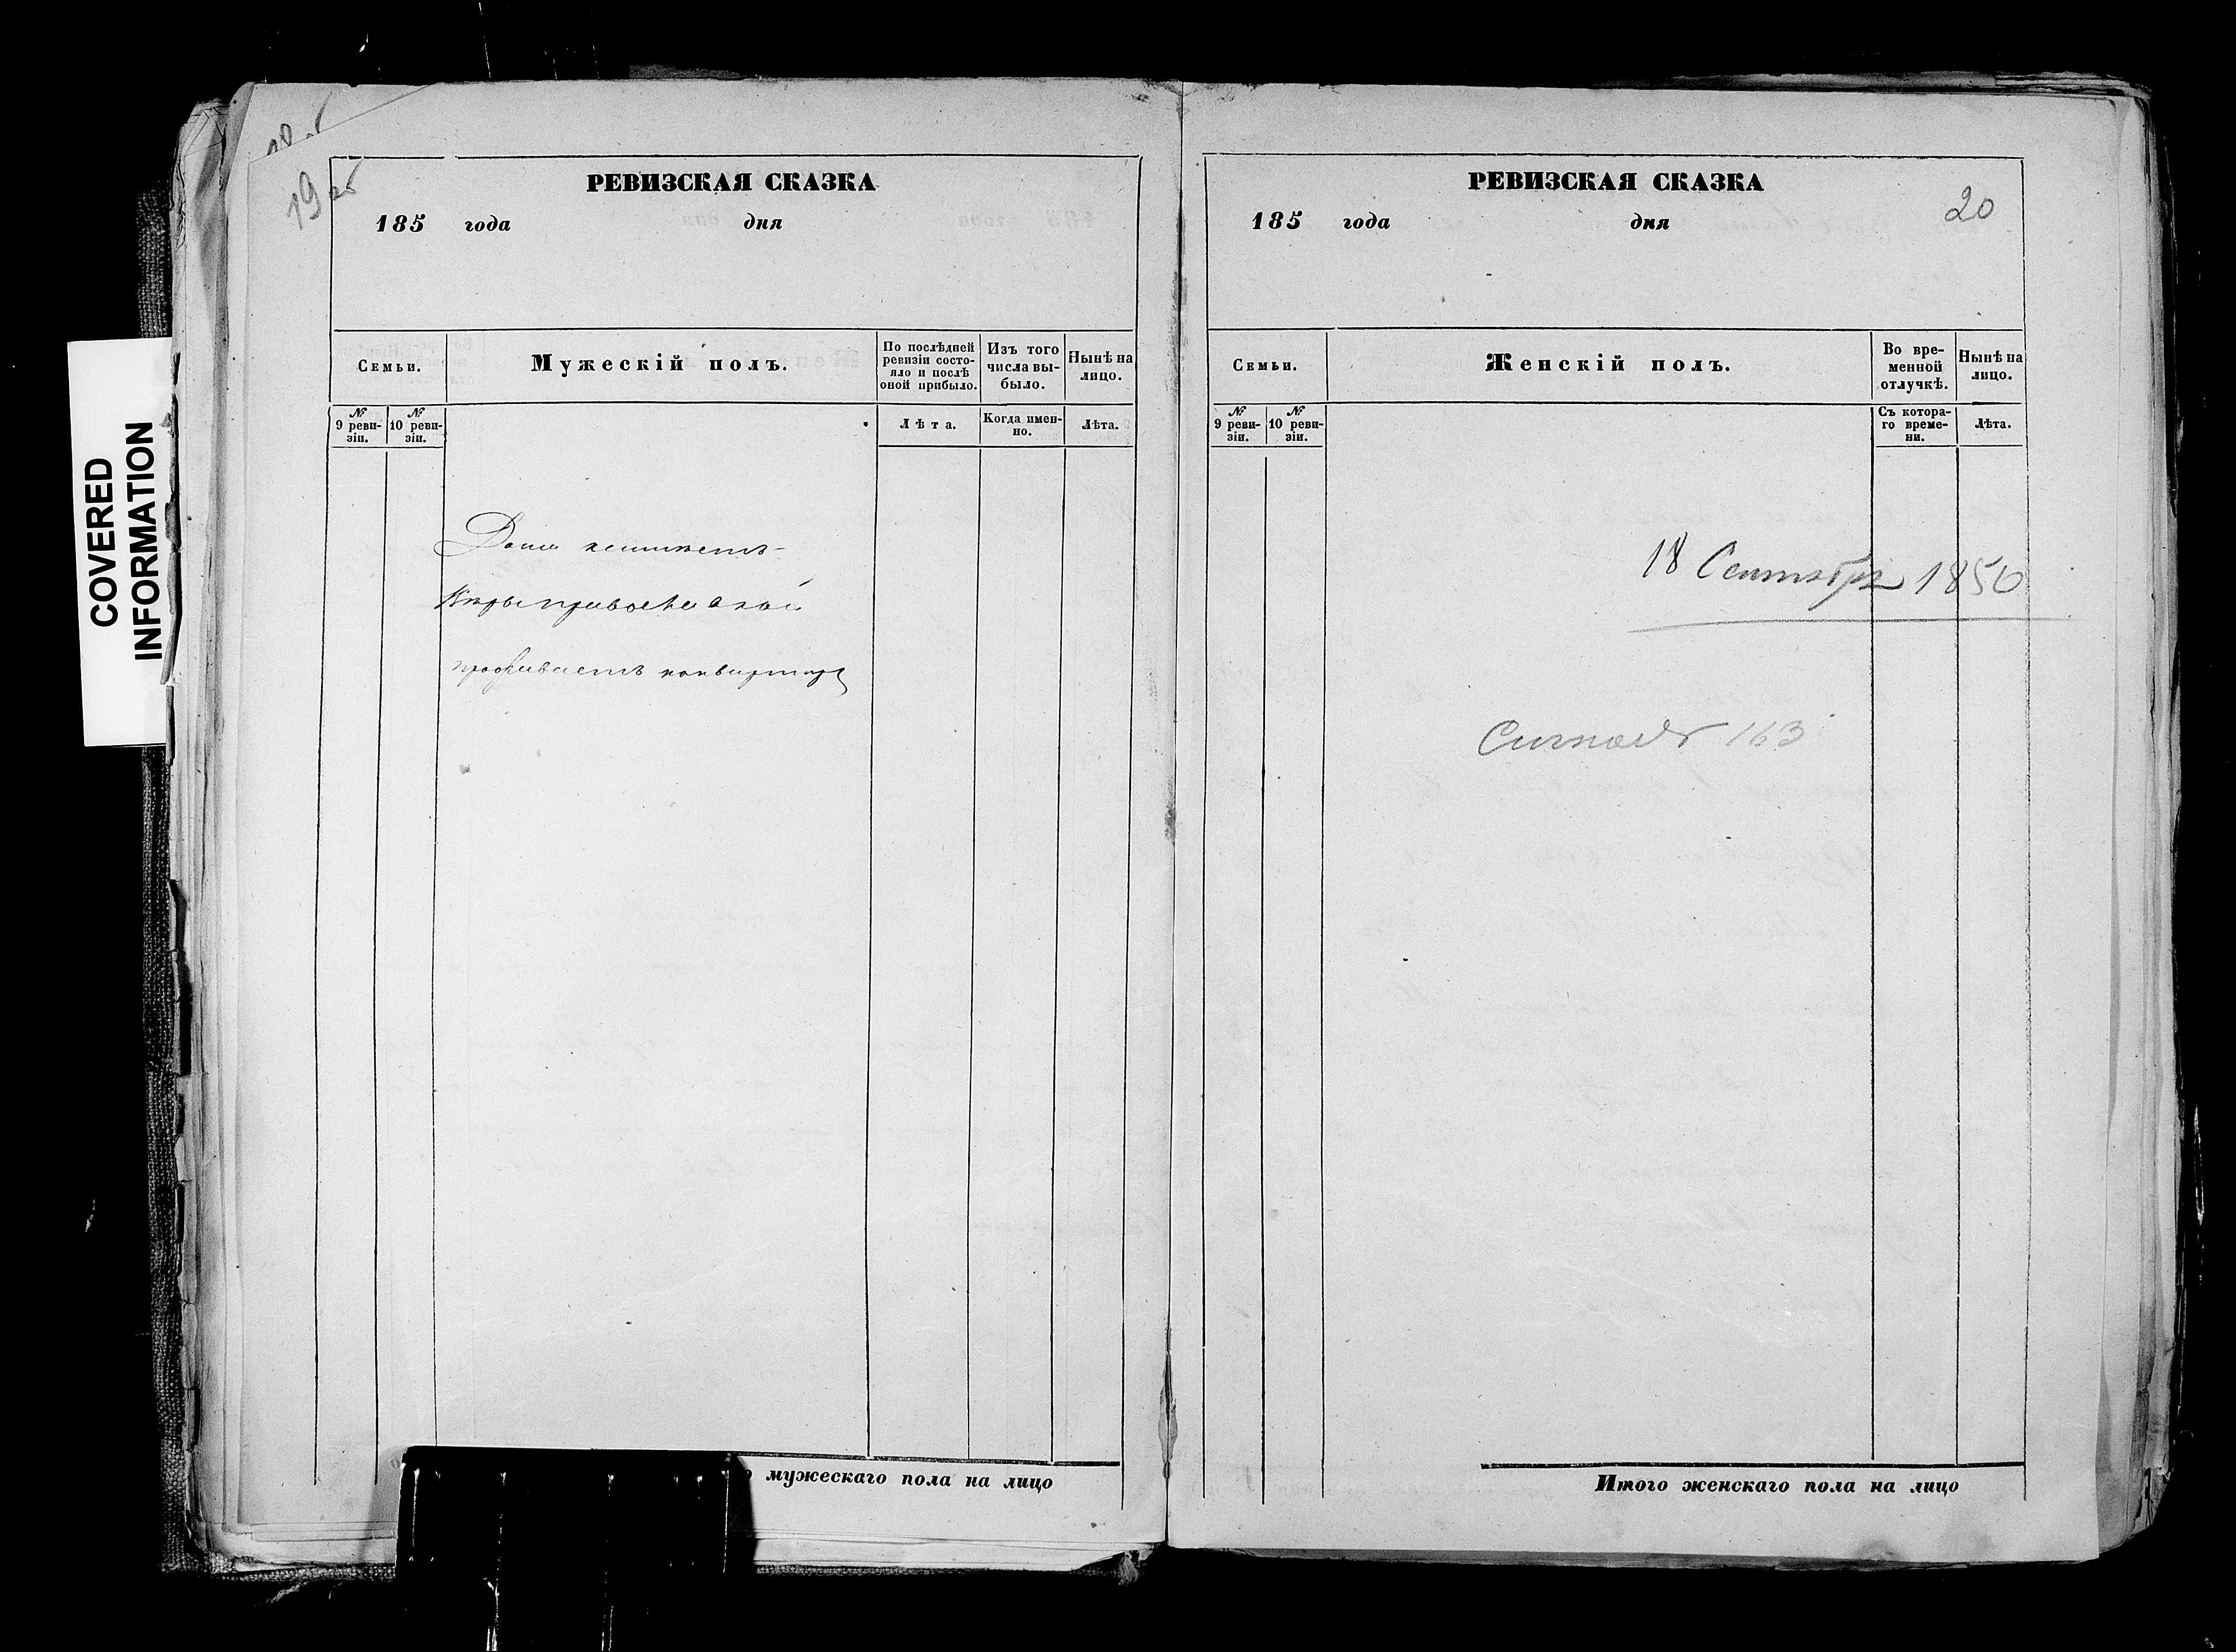 COVERED
INFORMATION
19 об
РЕВИЗСКАЯ СКАЗКА
185 года дня
Семьи.
Мужескій полъ.
По послѣдней
ревизіи состо-
яло и послѣ
оной прибыло.
Изъ того
числа вы-
было.
Нынѣ на
лицо.
№
9 реви-
зіи.
№
10 реви-
зіи.
Лѣта.
Когда имен-
но.
Лѣта.
проживаетъ
мужескаго пола на лицо
РЕВИЗСКАЯ СКАЗКА
20
185 года дня
Семьи.
Женскій полъ.
Во вре-
менной
отлучкѣ.
Нынѣ на
лицо.
№
9 реви-
зіи.
№
10 реви-
зіи.
Съ котора-
го време-
ни.
Лѣта.
18 Сентября 1850
163
Итого женскаго пола на лицо